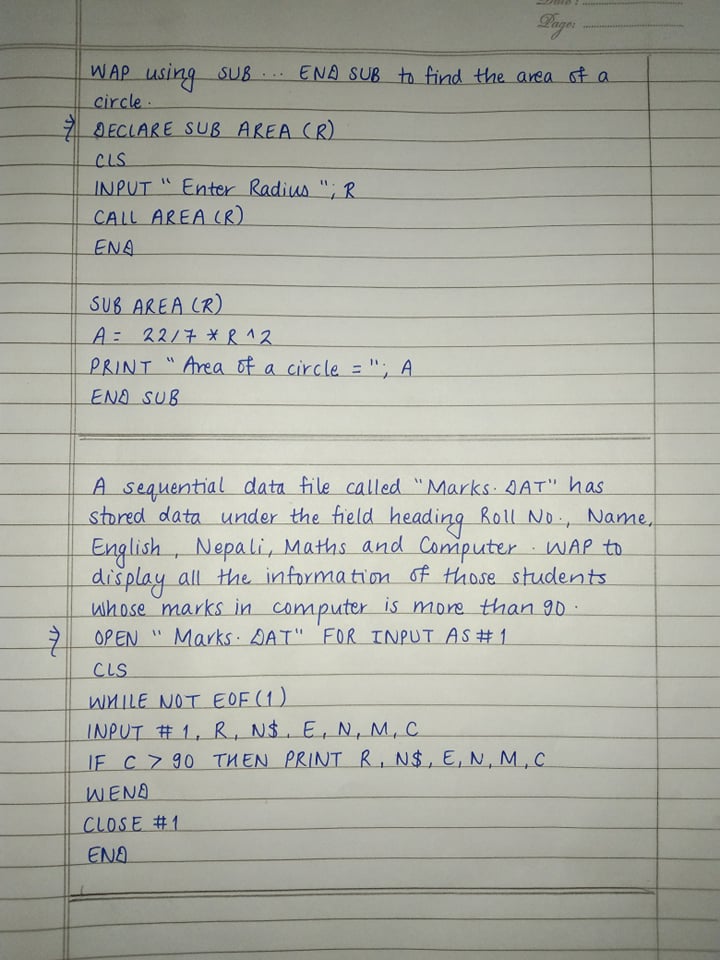 Date:
Page:
WAP using SUB ... END SUB to find the area of a
circle.
⇒ DECLARE SUB AREA (R)
CLS
INPUT " Enter Radius "; R
CALL AREA (R)
END
SUB AREA (R)
A = 22/7 * R ^ 2
PRINT " Area of a circle = "; A
END SUB
A sequential data file called "Marks.DAT" has
stored data under the field heading Roll No., Name,
English, Nepali, Maths and Computer. WAP to
display all the information of those students
whose marks in computer is more than 90.
⇒ OPEN " Marks.DAT" FOR INPUT AS #1
CLS
WHILE NOT EOF(1)
INPUT #1, R, N$, E, N, M, C
IF C > 90 THEN PRINT R, N$, E, N, M, C
WEND
CLOSE #1
END